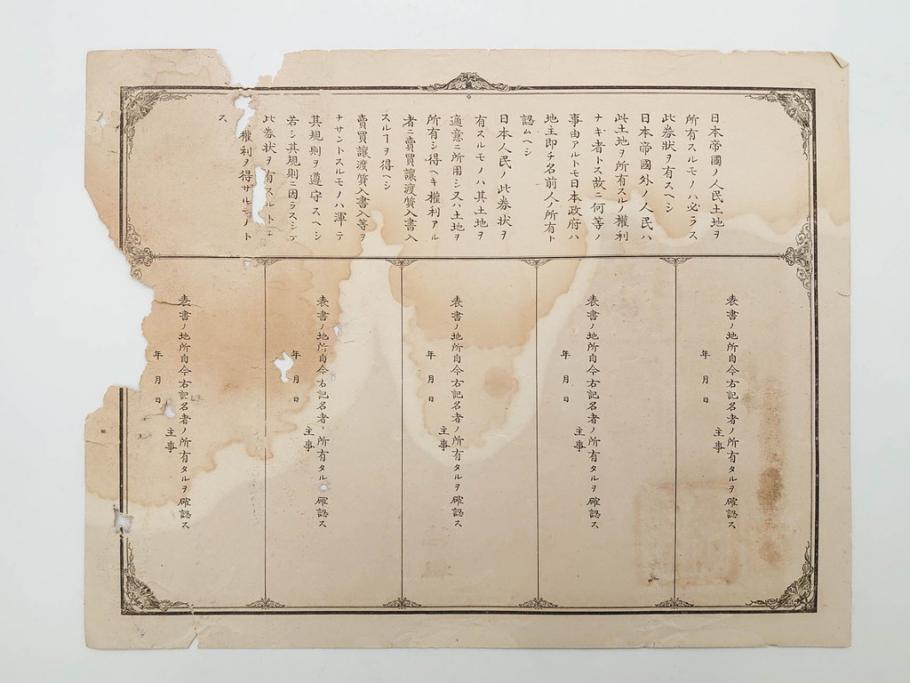 日本帝國ノ人民土地ヲ
所有スルモノハ必ラス
此券狀ヲ有スヘシ
日本帝國外ノ人民ハ
此土地ヲ所有スルノ權利
ナキ者トス故ニ何等ノ
事由アルトモ日本政府ハ
地主即チ名前人ノ所有ト
認ムヘシ
日本人民ノ此券狀ヲ
有スルモノハ其土地ヲ
適意ニ所用シ又ハ土地ヲ
所有シ得ヘキ權利アル
者ニ賣買讓渡質入書入
スルヿヲ得ヘシ
賣買讓渡質入書入等ヲ
ナサントスルモノハ渾テ
其規則ヲ遵守スヘシ
若シ其規則ニ因ラスシテ
此券狀ヲ有スルトモ
權利ヲ得サルモノト
ス
表書ノ地所自今右記名者ノ所有タルヲ確認ス
主事
年月日
表書ノ地所自今右記名者ノ所有タルヲ確認ス
主事
年月日
表書ノ地所自今右記名者ノ所有タルヲ確認ス
主事
年月日
表書ノ地所自今右記名者ノ所有タルヲ確認ス
主事
年月日
表書ノ地所自今右記名者ノ所有タルヲ確認ス
主事
年月日